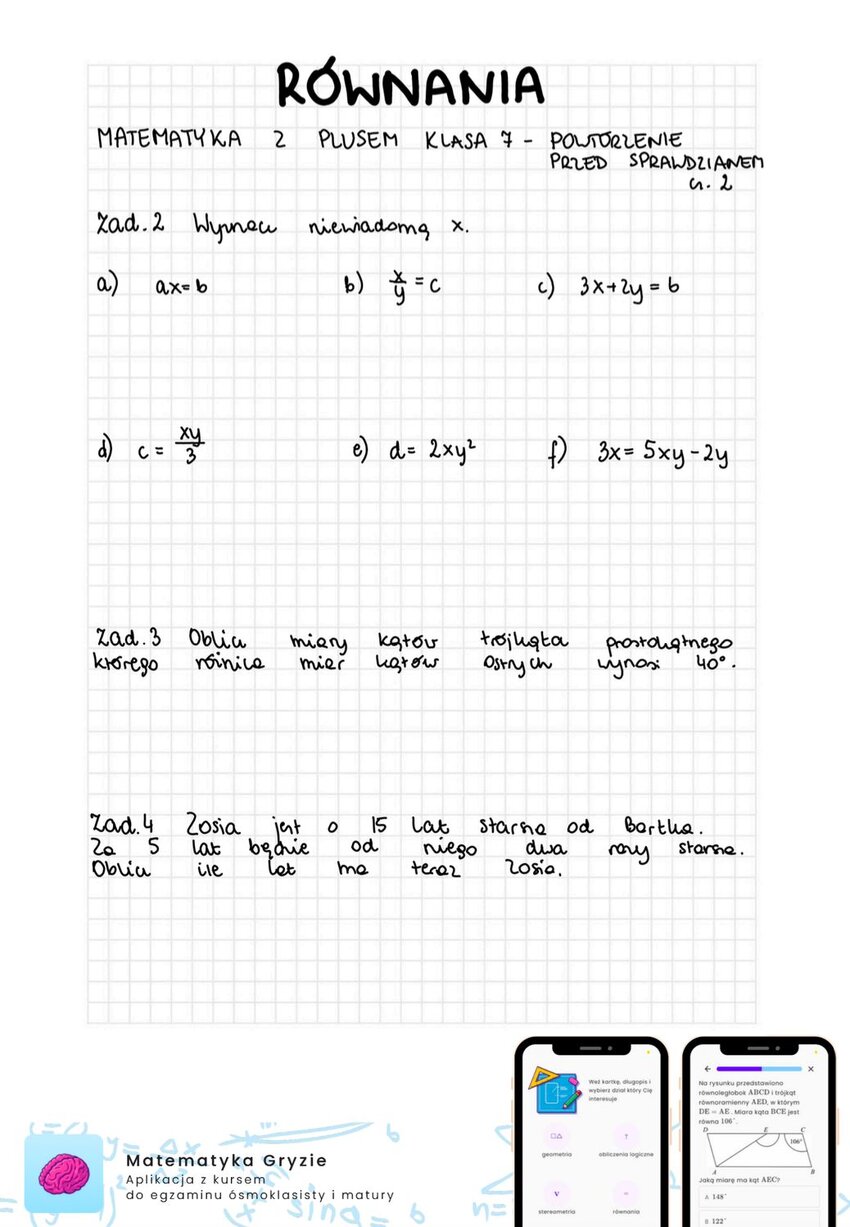 RÓWNANIA
MATEMATYKA Z PLUSEM KLASA 7 - POWTÓRZENIE
PRZED SPRAWDZIANEM
cz. 2
Zad. 2 Wyznacz niewiadomą x.
a) ax = b
b) x/y = c
c) 3x + 2y = b
d) c = xy/3
e) d = 2xy²
f) 3x = 5xy - 2y
Zad. 3 Oblicz miary kątów trójkąta prostokątnego
którego różnica miar kątów ostrych wynosi 40°.
Zad. 4 Zosia jest o 15 lat starsza od Bartka.
Za 5 lat będzie od niego dwa razy starsza.
Oblicz ile lat ma teraz Zosia.
Matematyka Gryzie
Aplikacja z kursem
do egzaminu ósmoklasisty i matury
Weź kartkę, długopis i
wybierz dział który Cię
interesuje
geometria
obliczenia logiczne
stereometria
równania
Na rysunku przedstawiono
równoległobok ABCD i trójkąt
równoramienny AED, w którym
DE = AE. Miara kąta BCE jest
równa 106°.
D E C
106°
A B
Jaką miarę ma kąt AEC?
A 148°
B 122°
y = ax
b
sina = b
n=